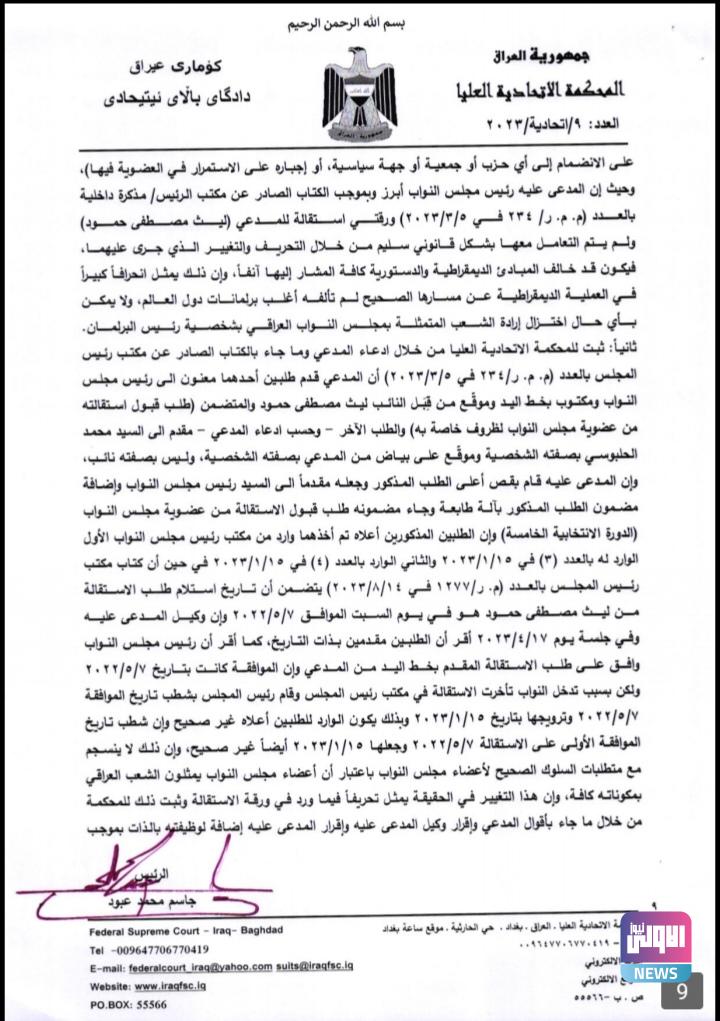 بسم الله الرحمن الرحيم
جمهورية العراق
المحكمة الاتحادية العليا
العدد: ٩/اتحادية/٢٠٢٣
كۆماری عیراق
دادگای بالآی ئیتیحادی
جمهورية العراق
على الانضمام إلى أي حزب أو جمعية أو جهة سياسية، أو إجباره على الاستمرار في العضوية فيها)،
وحيث إن المدعى عليه رئيس مجلس النواب أبرز وبموجب الكتاب الصادر عن مكتب الرئيس/ مذكرة داخلية
بالعدد (م. م. ر/ ٢٣٤ في ٢٠٢٣/٣/٥) ورقتي استقالة للمدعي (ليث مصطفى حمود)
ولم يتم التعامل معها بشكل قانوني سليم من خلال التحريف والتغيير الذي جرى عليهما،
فيكون قد خالف المبادئ الديمقراطية والدستورية كافة المشار إليها آنفاً، وإن ذلك يمثل انحرافاً كبيراً
في العملية الديمقراطية عن مسارها الصحيح لم تألفه أغلب برلمانات دول العالم، ولا يمكن
بأي حال اختزال إرادة الشعب المتمثلة بمجلس النواب العراقي بشخصية رئيس البرلمان.
ثانياً: ثبت للمحكمة الاتحادية العليا من خلال ادعاء المدعي وما جاء بالكتاب الصادر عن مكتب رئيس
المجلس بالعدد (م. م. ر/٢٣٤ في ٢٠٢٣/٣/٥) أن المدعي قدم طلبين أحدهما معنون الى رئيس مجلس
النواب ومكتوب بخط اليد وموقّع من قِبَل النائب ليث مصطفى حمود والمتضمن (طلب قبول استقالته
من عضوية مجلس النواب لظروف خاصة به) والطلب الآخر – وحسب ادعاء المدعي – مقدم الى السيد محمد
الحلبوسي بصفته الشخصية وموقّع على بياض من المدعي بصفته الشخصية، وليس بصفته نائب،
وإن المدعى عليه قام بقص أعلى الطلب المذكور وجعله مقدماً الى السيد رئيس مجلس النواب وإضافة
مضمون الطلب المذكور بآلة طابعة وجاء مضمونه طلب قبول الاستقالة من عضوية مجلس النواب
(الدورة الانتخابية الخامسة) وإن الطلبين المذكورين أعلاه تم أخذهما وارد من مكتب رئيس مجلس النواب الأول
الوارد له بالعدد (٣) في ٢٠٢٣/١/١٥ والثاني الوارد بالعدد (٤) في ٢٠٢٣/١/١٥ في حين أن كتاب مكتب
رئيس المجلس بالعدد (م. ر/١٢٧٧ في ٢٠٢٣/٨/١٤) يتضمن أن تاريخ استلام طلب الاستقالة
من ليث مصطفى حمود هو في يوم السبت الموافق ٢٠٢٢/٥/٧ وإن وكيل المدعى عليه
وفي جلسة يوم ٢٠٢٣/٤/١٧ أقر أن الطلبين مقدمين بذات التاريخ، كما أقر أن رئيس مجلس النواب
وافق على طلب الاستقالة المقدم بخط اليد من المدعي وإن الموافقة كانت بتاريخ ٢٠٢٢/٥/٧
ولكن بسبب تدخل النواب تأخرت الاستقالة في مكتب رئيس المجلس وقام رئيس المجلس بشطب تاريخ الموافقة
٢٠٢٢/٥/٧ وترويجها بتاريخ ٢٠٢٣/١/١٥ وبذلك يكون الوارد للطلبين أعلاه غير صحيح وإن شطب تاريخ
الموافقة الأولى على الاستقالة ٢٠٢٢/٥/٧ وجعلها ٢٠٢٣/١/١٥ أيضاً غير صحيح، وإن ذلك لا ينسجم
مع متطلبات السلوك الصحيح لأعضاء مجلس النواب باعتبار أن أعضاء مجلس النواب يمثلون الشعب العراقي
بمكوناته كافة، وإن هذا التغيير في الحقيقة يمثل تحريفاً فيما ورد في ورقة الاستقالة وثبت ذلك للمحكمة
من خلال ما جاء بأقوال المدعي وإقرار وكيل المدعى عليه وإقرار المدعى عليه إضافة لوظيفته بالذات بموجب
الرئيس
جاسم محمد عبود
٩
Federal Supreme Court – Iraq– Baghdad
Tel –009647706770419
E–mail: federalcourt_iraq@yahoo.com suits@iraqfsc.iq
Website: www.iraqfsc.iq
PO.BOX: 55566
الاتحادية العليا . العراق . بغداد . حي الحارثية . موقع ساعة بغداد
– ٠٠٩٦٤٧٧٠٦٧٧٠٤١٩
الالكتروني
الالكتروني
ص . ب – ٥٥٥٦٦
الاولى نيوز
NEWS
9